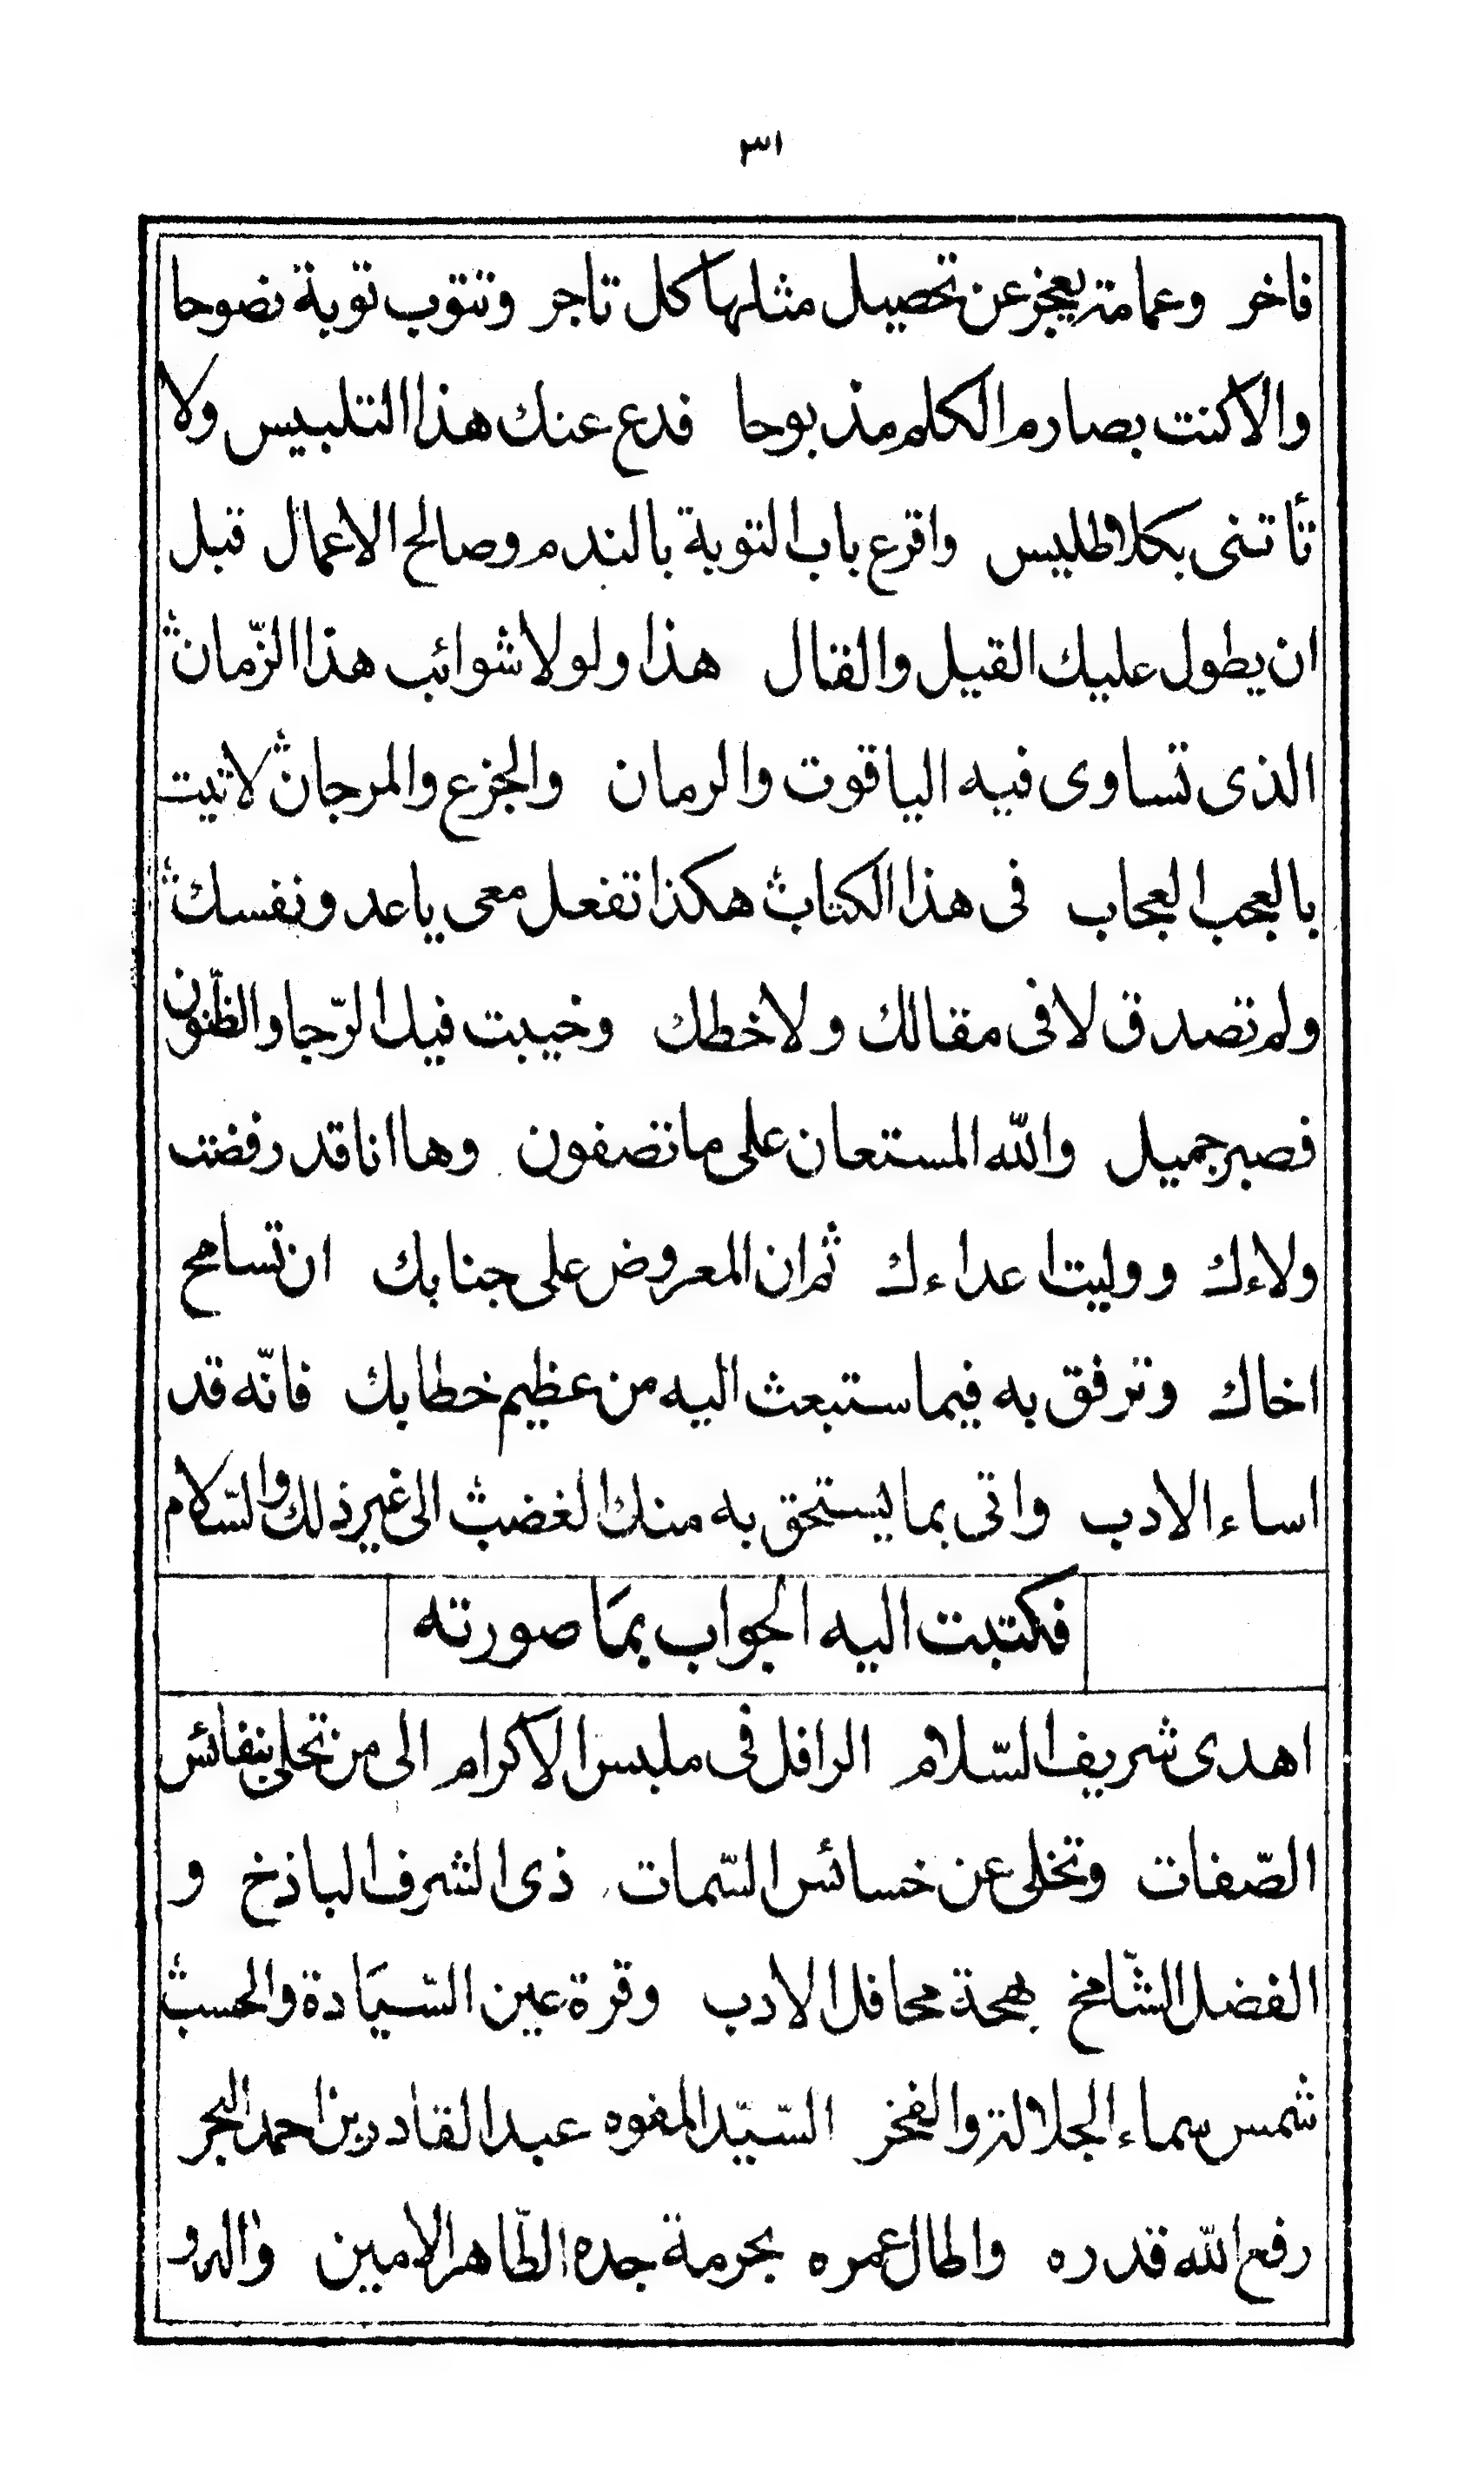 ٣١
فاخر وعمامة يعجز عن تحصيل مثلها كل تاجر وتتوب توبة نصوحا
والا كنت بصارم الكلم مذبوحا فدع عنك هذا التلبيس ولا
تأتنى بكلا طليس واقرع باب التوبة بالندم وصالح الاعمال قبل
ان يطول عليك القيل والقال هذا ولولا شوائب هذا الزّمان
الذى تساوى فيه الياقوت والرمان والجزع والمرجان لاتيت
بالعجب العجاب فى هذا الكتاب هكذا تفعل معى يا عدو نفسك
ولم تصدق لا فى مقالك ولا خطك وخيبت فيك الرّجا والظّنون
فصبر جميل والله المستعان على ما تصفون وها انا قد رفضت
ولاءك ووليت اعداءك ثم ان المعروض على جنابك ان تسامح
اخاك وترفق به فيما ستبعث اليه من عظيم خطابك فانّه قد
اساء الادب واتى بما يستحق به منك الغضب الى غير ذلك والسّلام
فكتبت اليه الجواب بمَا صورته
اهدى شريف السّلام الرافل فى ملبس الاكرام الى من تحلى بنفائس
الصّفات وتخلى عن خسائس السّمات ذى الشرف الباذخ و
الفضل الشّامخ بهجة محافل الادب وقرة عين السّيَادة والحسب
شمس سماء الجلالة والفخر السّيّد المفوه عبد القادر بن احمد البحر
رفع الله قدره واطال عمره بحرمة جده الطّاهر الامين واله و